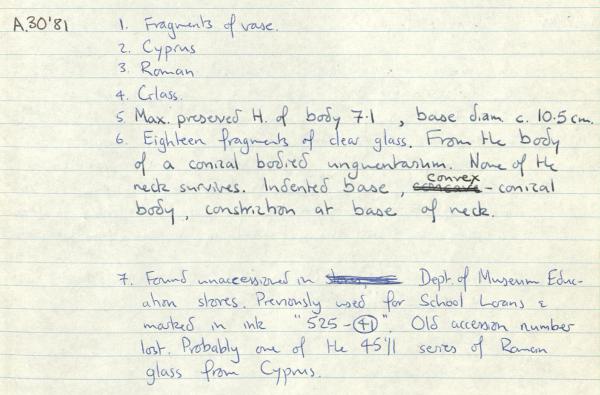 A.30'81
1. Fragments of vase.
2. Cyprus
3. Roman
4. Glass.
5 Max. preserved H. of body 7.1 , base diam c. 10.5 cm.
6. Eighteen fragments of clear glass. From the body
of a conical bodied unguentarium. None of the
neck survives. Indented base, concave convex - conical
body, constriction at base of neck.
7. Found unaccessioned in Dept. of Museum Educ-
ation stores. Previously used for School Loans &
marked in ink "525-41". Old accession number
lost. Probably one of the 45'11 series of Roman
glass from Cyprus.